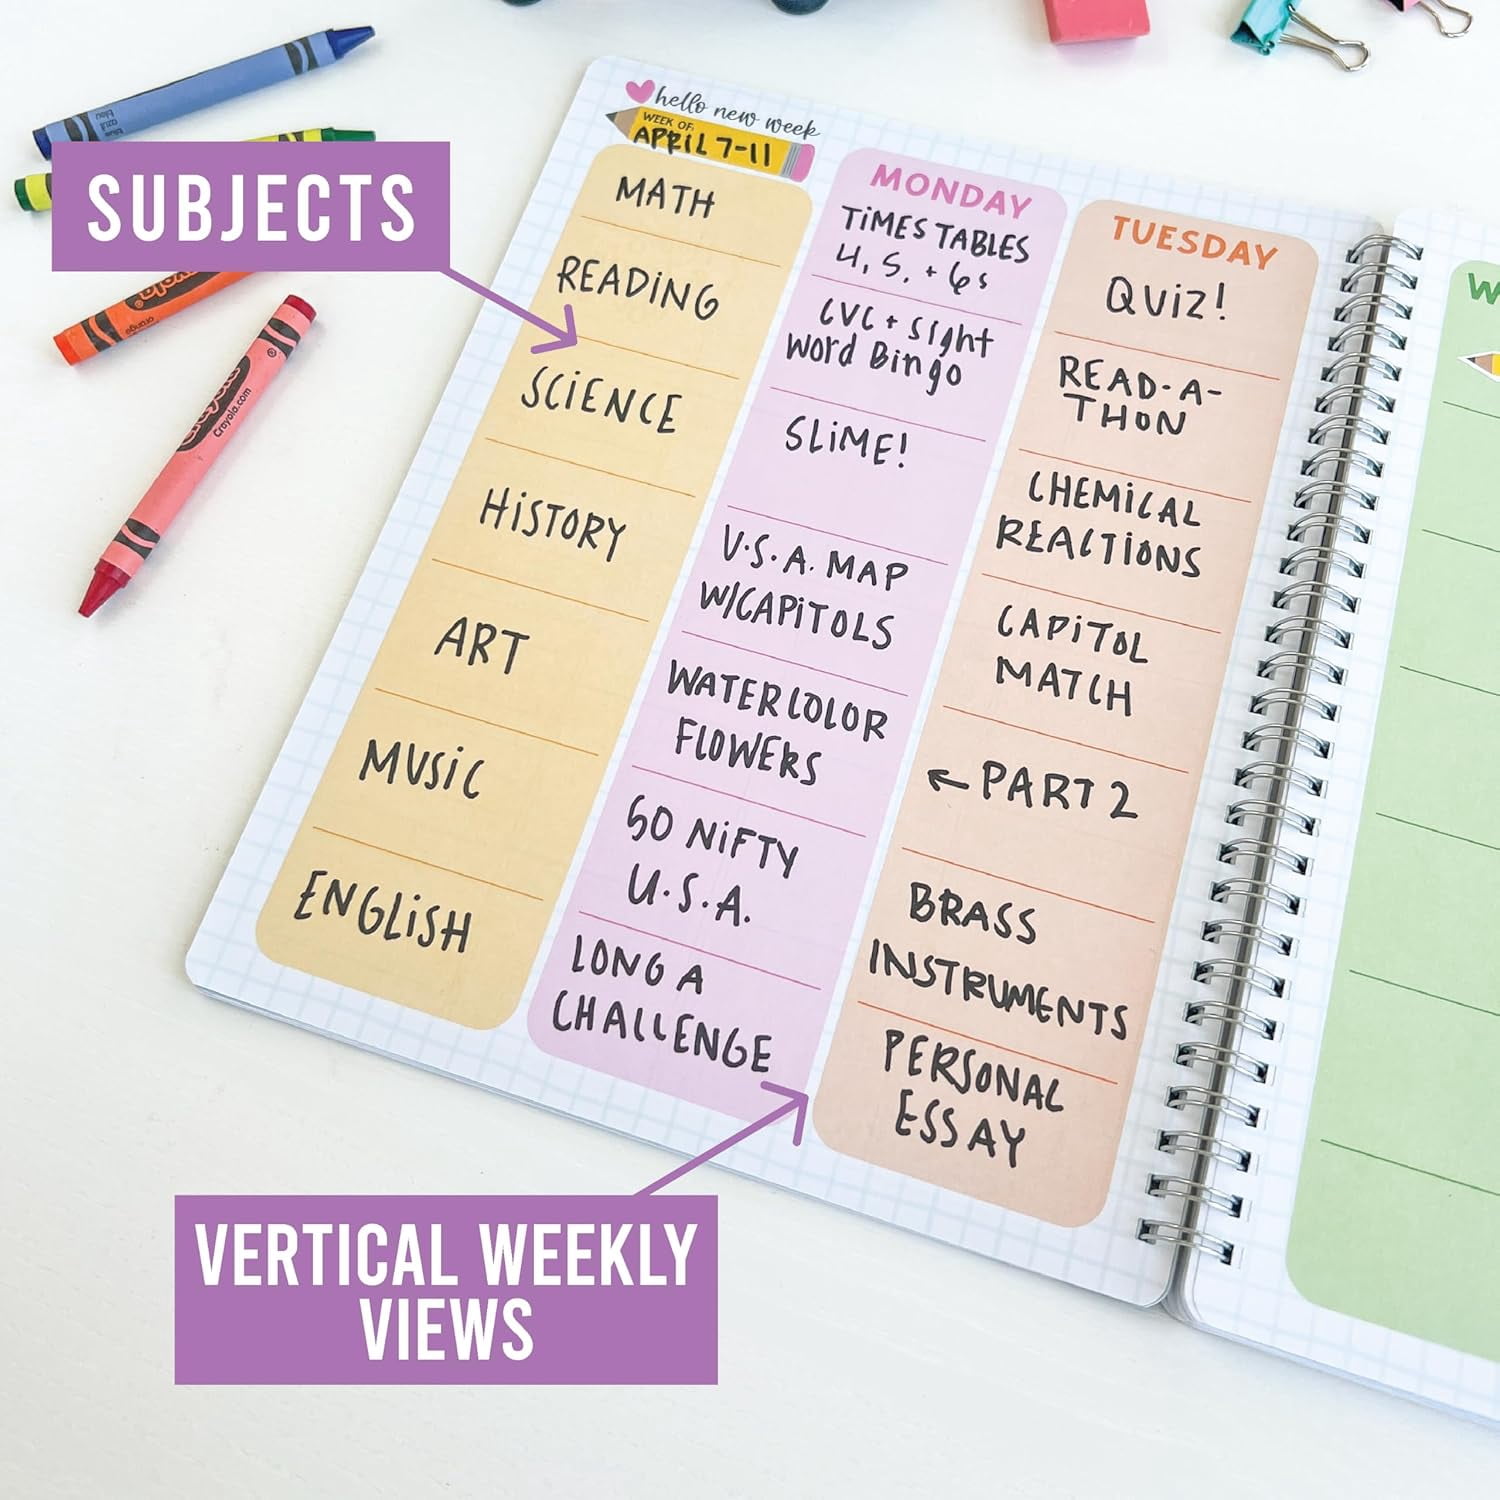 hello new week
WEEK OF:
APRIL 7-11
SUBJECTS
MATH
READING
SCIENCE
HISTORY
ART
MUSIC
ENGLISH
MONDAY
TIMES TABLES
4, 5, + 6s
CVC + sight
word Bingo
SLIME!
U.S.A. MAP
W/CAPITOLS
WATERCOLOR
FLOWERS
50 NIFTY
U.S.A.
LONG A
CHALLENGE
TUESDAY
QUIZ!
READ-A-
THON
CHEMICAL
REACTIONS
CAPITOL
MATCH
← PART 2
BRASS
INSTRUMENTS
PERSONAL
ESSAY
W
VERTICAL WEEKLY
VIEWS
blue
azul
bleu
Crayola
Crayola.com